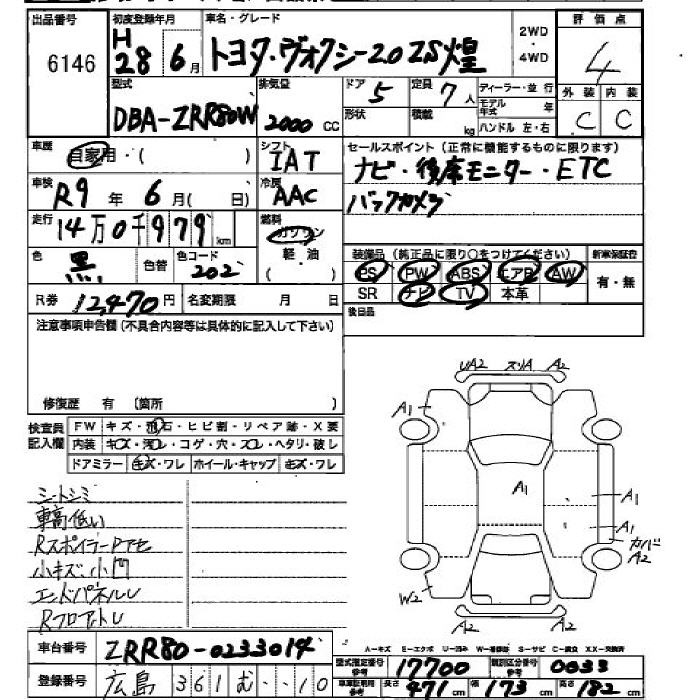 出品番号 初度登録年月 車名・グレード 2WD 4WD 評価点
6146 H 28 6月 トヨタ・ヴォクシー2.0 ZS煌 4
型式 排気量 ドア 5 定員 7人 ディーラー・並行 外装 内装
DBA-ZRR80W 2000 CC 形状 積載 kg モデル年式 年 ハンドル 左・右 C C
車歴 自家用・( ) シフト IAT
セールスポイント (正常に機能するものに限ります)
ナビ・後席モニター・ETC
バックカメラ
車検 R9年 6月( 日) 冷房 AAC
走行 14万0千979 km 燃料 ガソリン 軽・油 ( )
色 黒 色替 色コード 202
装備品 (純正品に限り○をつけてください) 新車保証書
PS PW ABS エアB AW 有・無
SR ナビ TV 本革
R券 12,470円 名変期限 月 日 後日品
注意事項申告欄 (不具合内容等は具体的に記入して下さい)
修復歴 有 (箇所 )
検査員記入欄 FW キズ・飛石・ヒビ割・リペア跡・X要
内装 キズ・汚レ・コゲ・穴・スレ・ヘタリ・破レ
ドアミラー キズ・ワレ ホイール・キャップ キズ・ワレ
シートシミ
車高低い
Rスポイラー
小キズ・小凹
エンドパネルU
RフロアトレU
UA2 スリA A2
A1 A2
A1 A1
A1
カバーA2
W2
A2 A2
車台番号 ZRR80-0233014
A-キズ E-エクボ U-凹み W-補修跡 S-サビ C-腐食 XX-交換済
登録番号 広島 361 む ・・10
型式指定番号 参考 17700 類別区分番号 参考 0033
車車証明用 参考 長さ 471 cm 幅 173 cm 高さ 182 cm